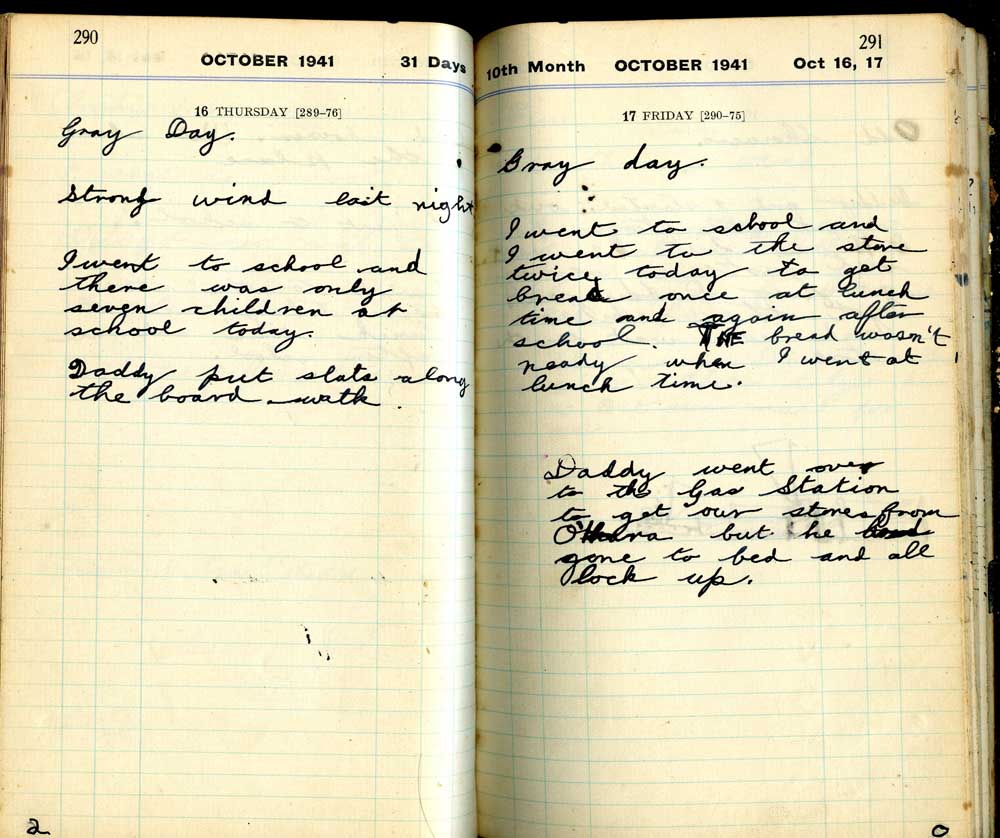 290
OCTOBER 1941 31 Days
16 THURSDAY [289–76]
Gray Day.
Strong wind last night
I went to school and
there was only
seven children at
school today.
Daddy put slats along
the board walk
2
291
10th Month OCTOBER 1941 Oct 16, 17
17 FRIDAY [290–75]
Gray day.
I went to school and
I went to the store
twice today to get
bread once at lunch
time and again after
school. THE bread wasn't
ready when I went at
lunch time.
Daddy went over
to the Gas Station
to get our stores from
O'Hara but he had
gone to bed and all
lock up.
0